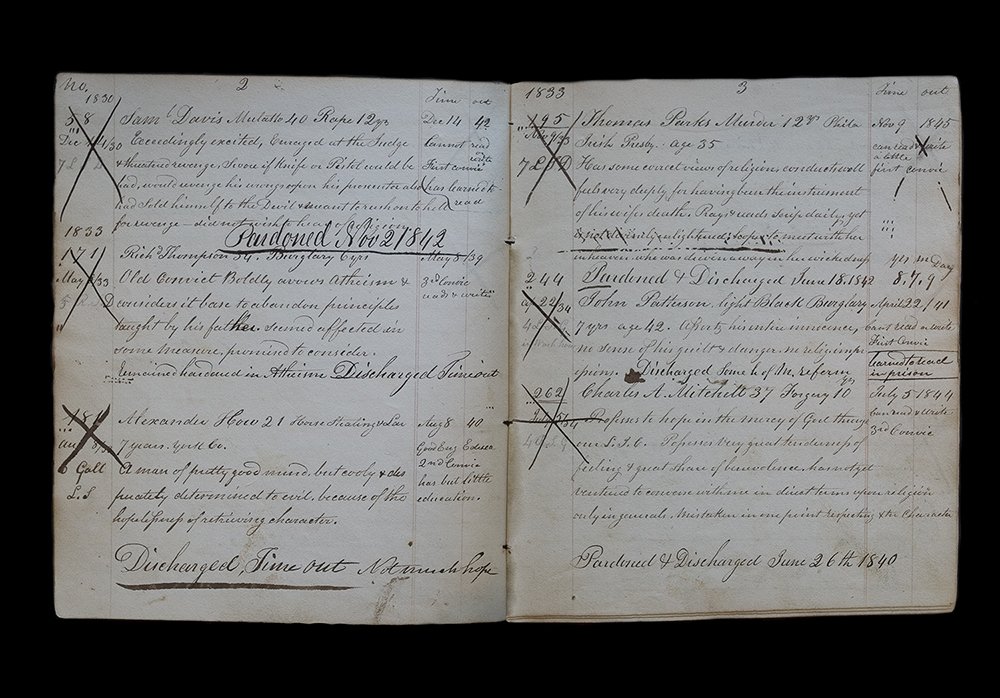 No. 2 Time out
1830
58 Saml Davis Mulatto 40 Rape 12 yrs Dec 14 42
Dec 14/30 Exceedingly excited, Enraged at the Judge Cannot read
7 L & threatened revenge, Swore if Knife or Pistol could be First convic
had, would revenge his wrongs upon his prosecutor also has learned to
had Sold himself to the Devil & want to rush on to hell read
for revenge - did not wish to hear of religion
Pardoned Nov 2 1842
1833
171 Richd Thompson 34 Burglary 6 yrs May 8 /39
May 8/33 Old Convict Boldly avows Atheism & 3rd Convic
5 considers it base to abandon principles reads & writes
taught by his father. seemed affected in
some measure, promised to consider.
remained hardened in Atheism Discharged Time out
Alexander How 21 Horse Stealing & Lar Aug 8 40
7 years. York Co. Good Eng Educa
6 Gall A man of pretty good mind. but cooly & des 2nd Convic
L. S perately determined to evil, because of the has but little
hopelessness of retrieving character. education.
Discharged, Time out Not much hope
1833 3 Time out
195 Thomas Parks Murder 12 yrs Phila Nov 9 1845
Nov 9/33 Irish Presby. age 35 can read & write
a little
7 L Has some correct views of religious conduct well first convic
feels very deeply for having been the instrument
of his wifes death. Prays & reads Scrip daily, yet
is not clearly enlightened; hopes to meet with her
in heaven. who was driven away in her wickedness yrs m Days
Pardoned & Discharged June 18. 1842 8, 7, 9
244 John Patterson light Black Burglary April 22 / 41
Ap 22/34 7 yrs age 42. Asserts his entire innocence, Cant read or write
no sense of his guilt & danger. no religi impr First Convic
essions. Discharged Some h of his reform learned to read
in prison
262 Charles A. Mitchell 37 Forgery 10 yrs July 5 1844
July 5/34 Professes to hope in the mercy of God through Can read & write
our L. J. C. Possesses very great tenderness of 3rd Convic
feeling & great share of benevolence. has not yet
ventured to converse with me in direct terms upon religion
only in generals. Mistaken in one point respecting & his Character
Pardoned & Discharged June 26th 1840